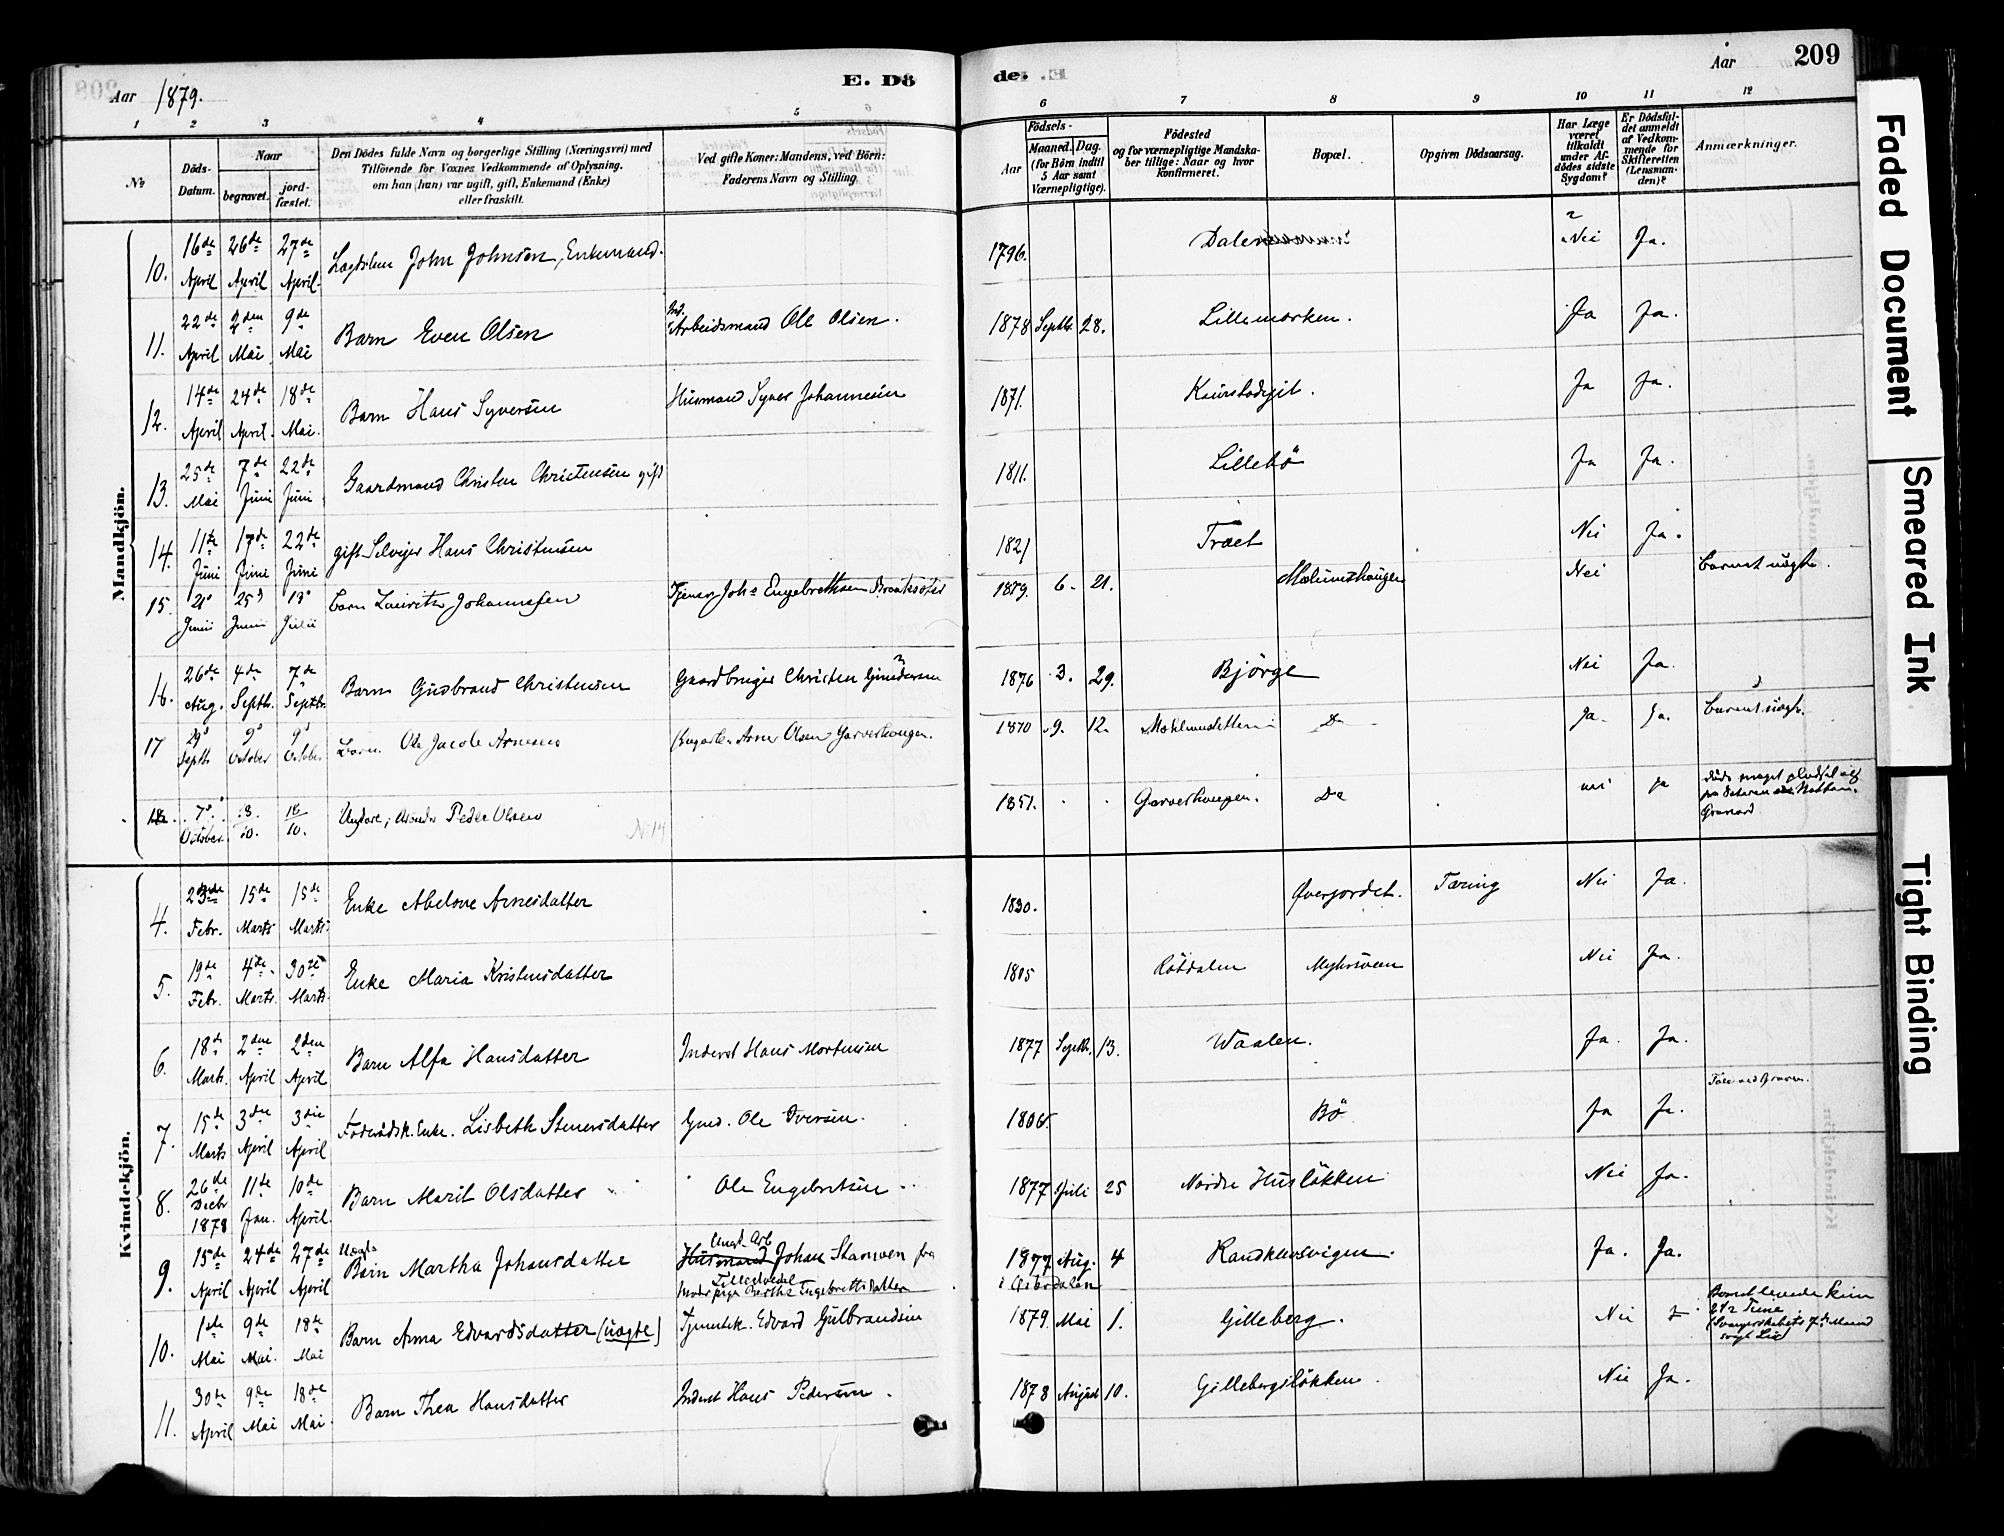 Aar 1879.
E. Dö
de.
Aar
209
1 2 3 4 5
6 7 8 9 10 11 12
No
Döds-Datum.
Naar
begravet.
jord-fæstet.
Den Dödes fulde Navn og borgerlige Stilling (Næringsvei) med
Tilföiende for Voxnes Vedkommende af Oplysning,
om han (hun) var ugift, gift, Enkemand (Enke)
eller fraskilt.
Ved gifte Koner: Mandens, ved Börn:
Faderens Navn og Stilling.
Födsels-
Aar
Maaned. Dag.
(for Börn indtil
5 Aar samt
Værnepligtige).
Födested
og for værnepligtige Mandska-
ber tillige: Naar og hvor
konfirmeret.
Bopæl.
Opgiven Dödsaarsag.
Har Læge
været
tilkaldt
under Af-
dödes sidste
Sygdom?
Er Dödsfal-
det anmeldt
af Vedkom-
mende for
Skifteretten
(Lensman-
den)?
Anmærkninger.
Mandkjön.
10. 16de April 26de April 27de April. Lægdslem John Johnsen, Enkemand. 1796. Nei Ja.
11. 22de April 2den Mai 9de Mai Barn Even Olsen Arbeidsmand Ole Olsen. 1878 Septbr. 28. Lillemoeken. Ja Ja.
12. 14de April 24de April. 18de Mai. Barn Hans Syversen Husmand Syver Johannesen 1871. Ja Ja.
13. 25de Mai 7de Juni 22de Juni Gaardmand Christen Christensen gift 1811. Lillebö Ja Ja.
14. 11te Juni 17de Juni 22de Juni gift Selveier Hans Christensen 1821 Træet Nei Ja.
15. 21 Juni 25 Juni 13 Julii Barn Lauritz Johannesen Tjener Johs Engebrethsen 1879. 6. 21. Nei Barnet uægte.
16. 26de Aug. 4de Septb. 7de Septb. Barn Gudbrand Christensen Gaardbruger Christen Gundersen 1876 3. 29. Bjørge Nei Ja.
17 29 Septb 9 October 9 October Barn Ole Jacob Arnesen Arne Olsen Garverhaugen. 1870 9. 12. Do Ja. Ja. Barnet uægte.
18. 7 October 13/10. 18/10. Peder Olsen No 14 1851. Garverhaugen. Do nei ja døde meget pludselig
Kvindekjön.
4. 23de Febr. 15de Marts 15de Marts. Enke Abelone Arnesdatter 1830. Øverjordet. Tæring Nei Ja.
5. 19de Febr. 4de Marts. 30te Marts. Enke Maria Kristensdatter 1805 Nei Ja.
6. 18de Marts. 2den April 2den April Barn Alfa Hansdatter Inderst Hans Mortensen 1877 Septb. 13. Waalen. Ja. Ja.
7. 15de Marts 3die April 3die April Föderaadsk. Enke. Lisbeth Stenersdatter Gmd. Ole Iversen. 1806. Bö Ja Ja.
8. 26de Decbr 1878 11te Jan. 10de April. Barn Marit Olsdatter Ole Engebretsen 1877 Juli 25 Nordre Huslökken Nei Ja.
9. 15de April 24de April 27de April Uægte Barn Martha Johansdatter Ungk. Arb. Husmand Johan Stamven fra
Berthe Engebrettsdatter 1877 Aug. 4 Randklevsvigen. Ja. Ja.
i Østerdalen
10. 1ste Mai 9de Mai. 18de Mai Barn Anna Edvardsdatter (uægte) Tjenestek. Edvard Gulbrandsen 1879. Mai 1. Gilleberg. Nei Barnet levede kun
2 1/2 Time
11. 30te April 9de Mai 18de Mai. Barn Thea Hansdatter Inderst Hans Pedersen. 1878 August 10. Gillebergslökken. Nei Ja.
Faded Document
Smeared Ink
Tight Binding